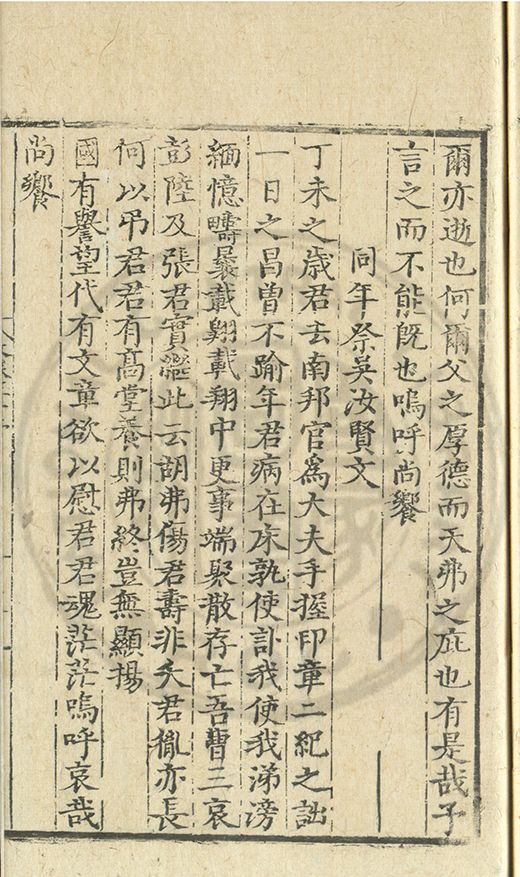 爾亦逝也何爾父之厚德而天弗之庇也有是哉予
言之而不能旣也嗚呼尚饗
同年祭吳汝賢文
丁未之歲君去南邦官爲大夫手握印章二紀之詘
一日之昌曽不踰年君病在床孰使訃我使我涕滂
緬憶疇曩載翱載翔中更事端聚散存亡吾曹三哀
彭陸及張君實繼此云胡弗傷君壽非夭君胤亦長
何以弔君君有髙堂養則弗終豈無顯揚
國有譽望代有文章欲以慰君君魂茫茫嗚呼哀哉
尚饗